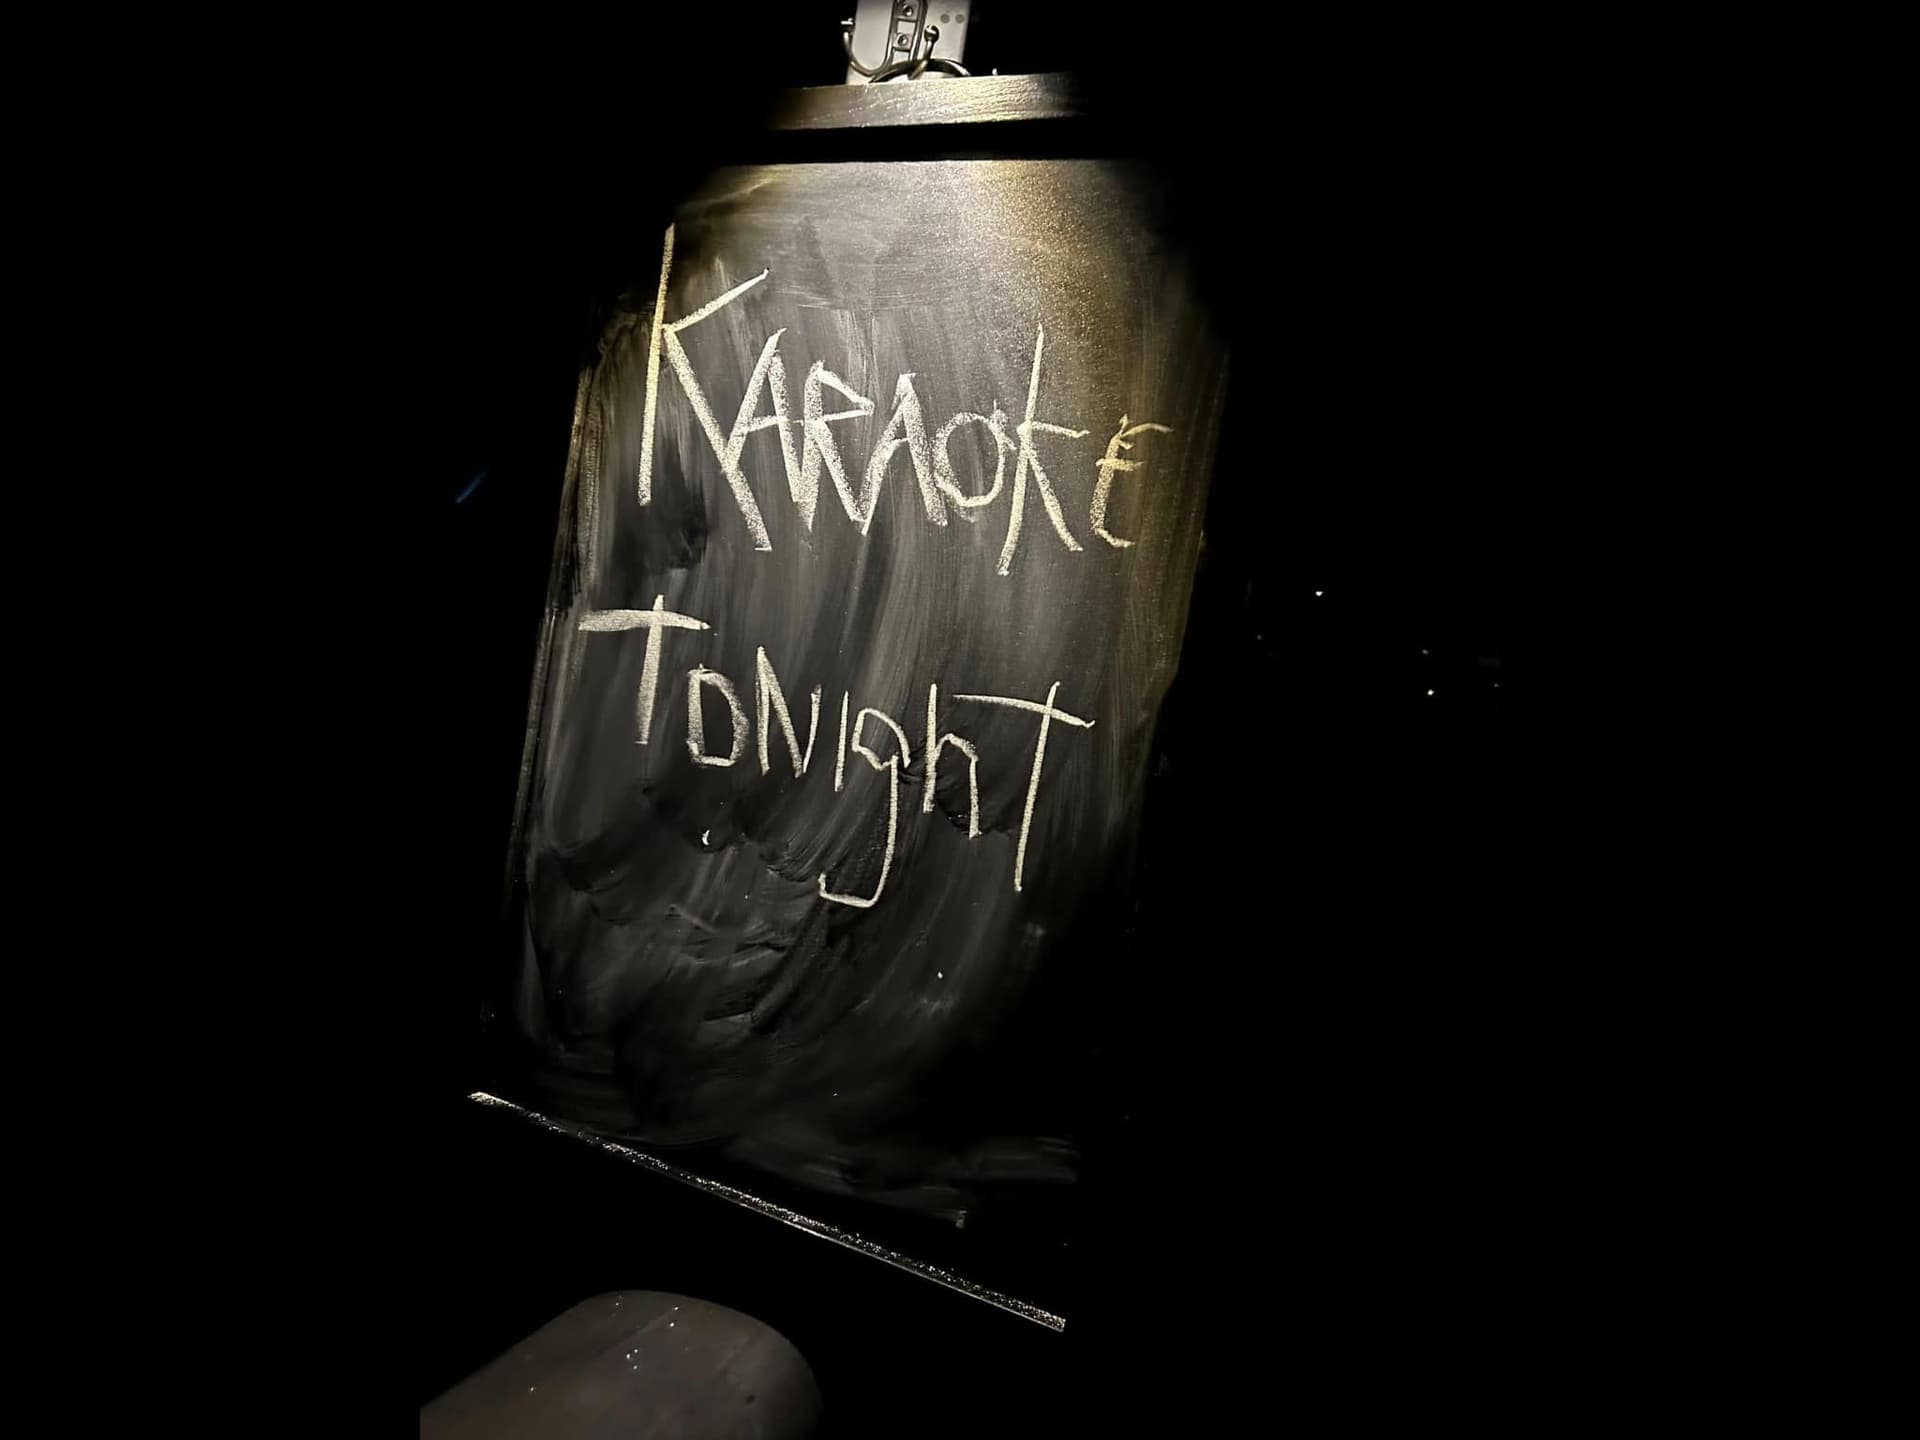 KARAOKE
TONIghT